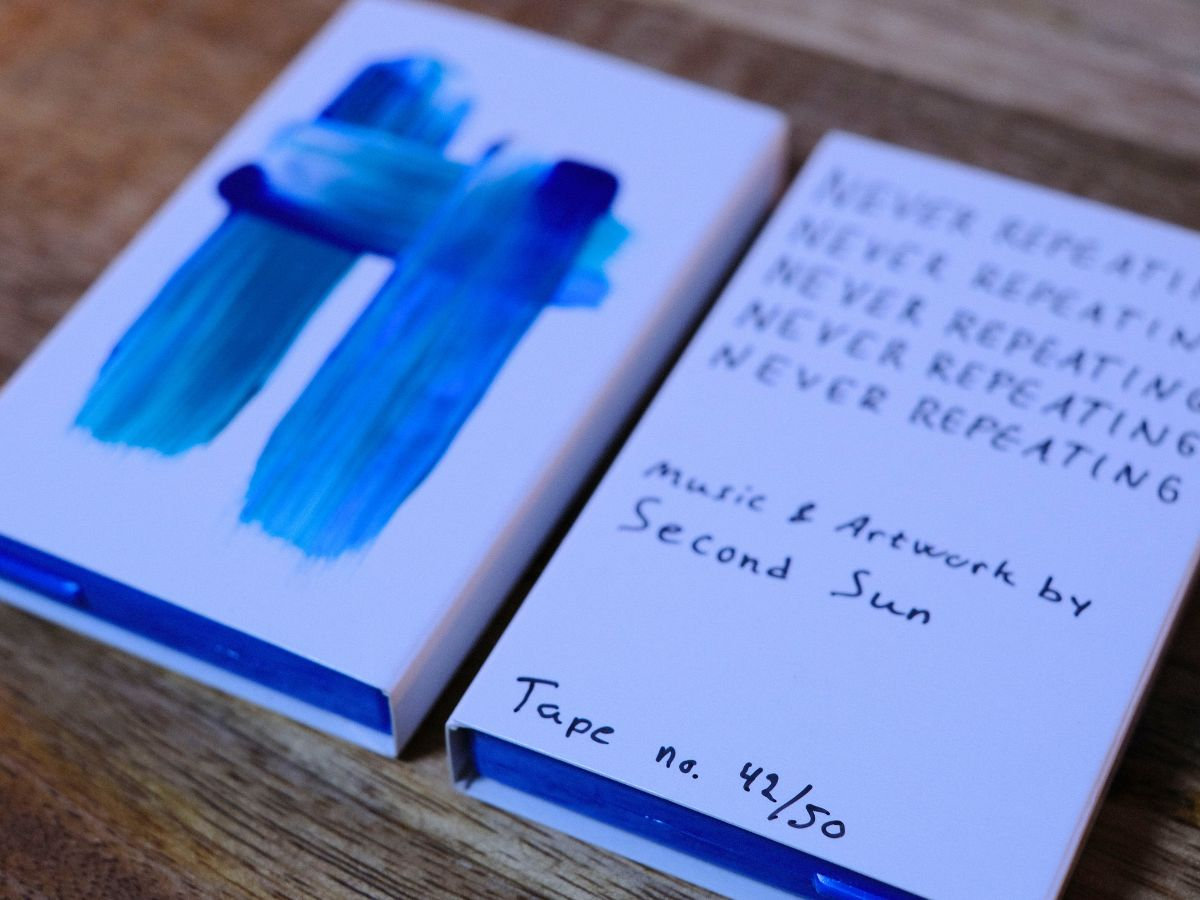 NEVER REPEATIN
NEVER REPEATING
NEVER REPEATING
NEVER REPEATING
NEVER REPEATING
Music & Artwork by
Second Sun
Tape no. 42/50